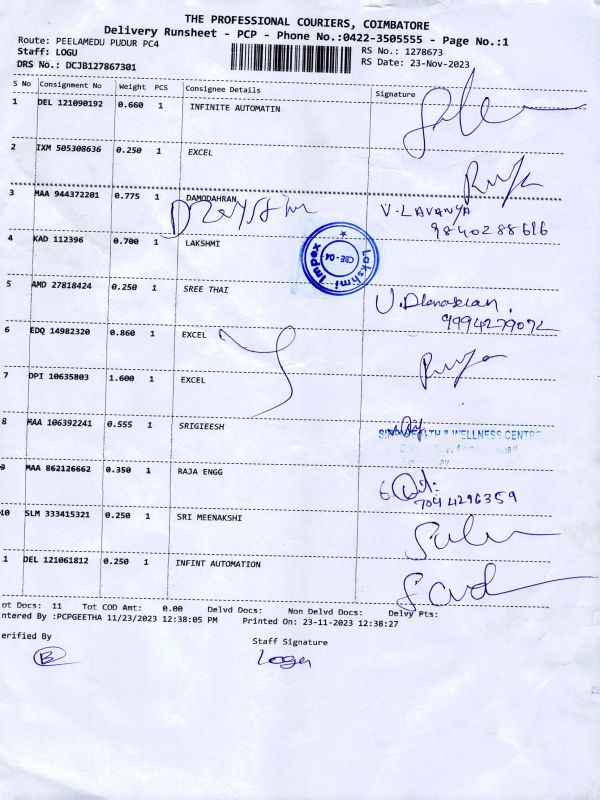 THE PROFESSIONAL COURIERS, COIMBATORE
Delivery Runsheet - PCP - Phone No.:0422-3505555 - Page No.:1
Route: PEELAMEDU PUDUR PC4
RS No.: 1278673
Staff: LOGU
RS Date: 23-Nov-2023
DRS No.: DCJB127867301
S No Consignment No Weight PCS Consignee Details Signature
1 DEL 121090192 0.660 1 INFINITE AUTOMATIN
2 IXM 505308636 0.250 1 EXCEL
3 MAA 944372201 0.775 1 DAMODAHRAN V-LAVANYA
9840288616
4 KAD 112396 0.700 1 LAKSHMI
Lakshmi Impex
CBE-04
5 AMD 27818424 0.250 1 SREE THAI
9994279072
6 EDQ 14982320 0.860 1 EXCEL
7 DPI 10635803 1.600 1 EXCEL
8 MAA 106392241 0.555 1 SRIGIEESH
& WELLNESS CENTRE
Road
9 MAA 862126662 0.350 1 RAJA ENGG
7044296359
10 SLM 333415321 0.250 1 SRI MEENAKSHI
1 DEL 121061812 0.250 1 INFINT AUTOMATION
ot Docs: 11 Tot COD Amt: 0.00 Delvd Docs: Non Delvd Docs: Delvy Pts:
ntered By :PCPGEETHA 11/23/2023 12:38:05 PM Printed On: 23-11-2023 12:38:27
erified By Staff Signature
Logu